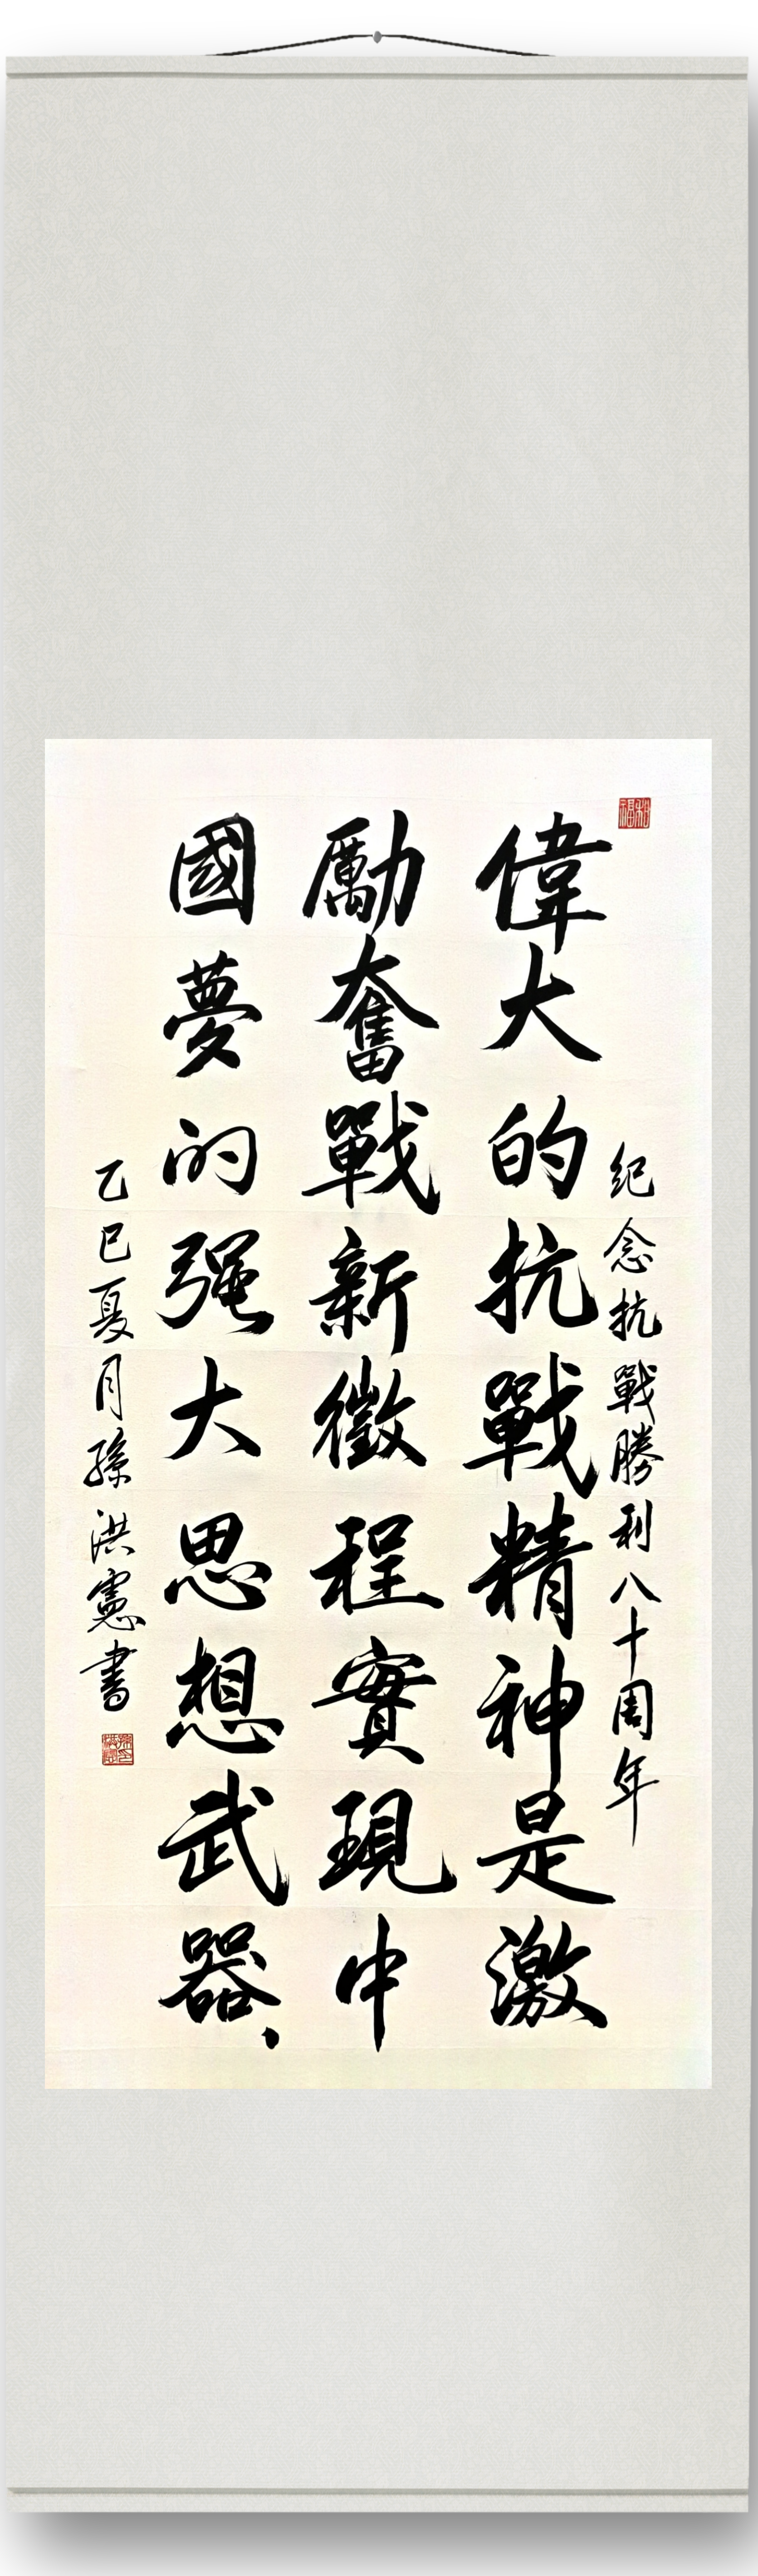 紀念抗戰勝利八十周年
偉大的抗戰精神是激
勵奮戰新徵程實現中
國夢的强大思想武器、
乙巳夏月孫洪憲書